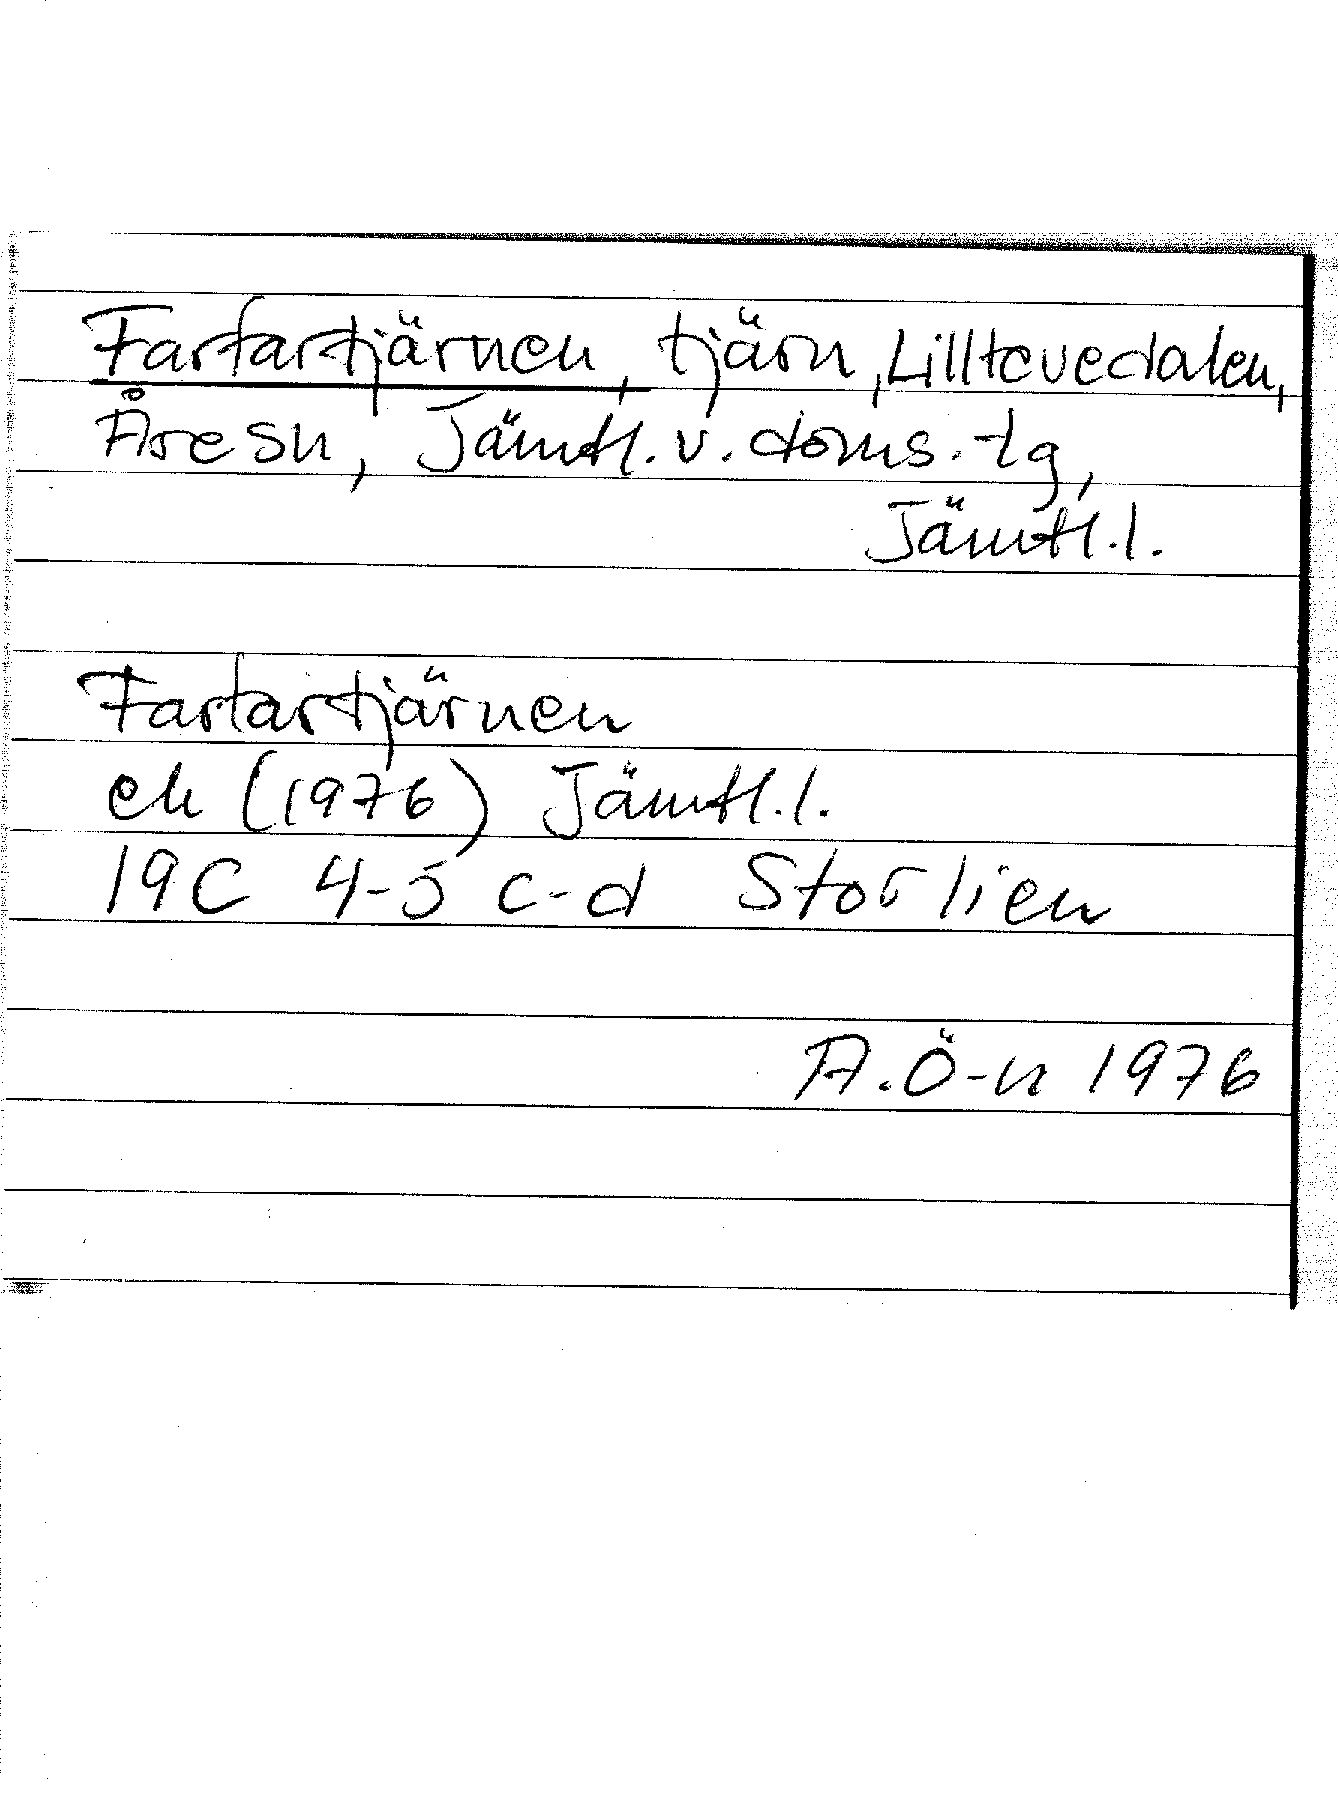 Farfartjärnen, tjärn, Lilltevedalen,
Åre sn, Jämtl. v. doms. tg,
Jämtl. l.
Farfartjärnen
ek (1976) Jämtl. l.
19C 4-5 c-d Storlien
A. Ö-n 1976